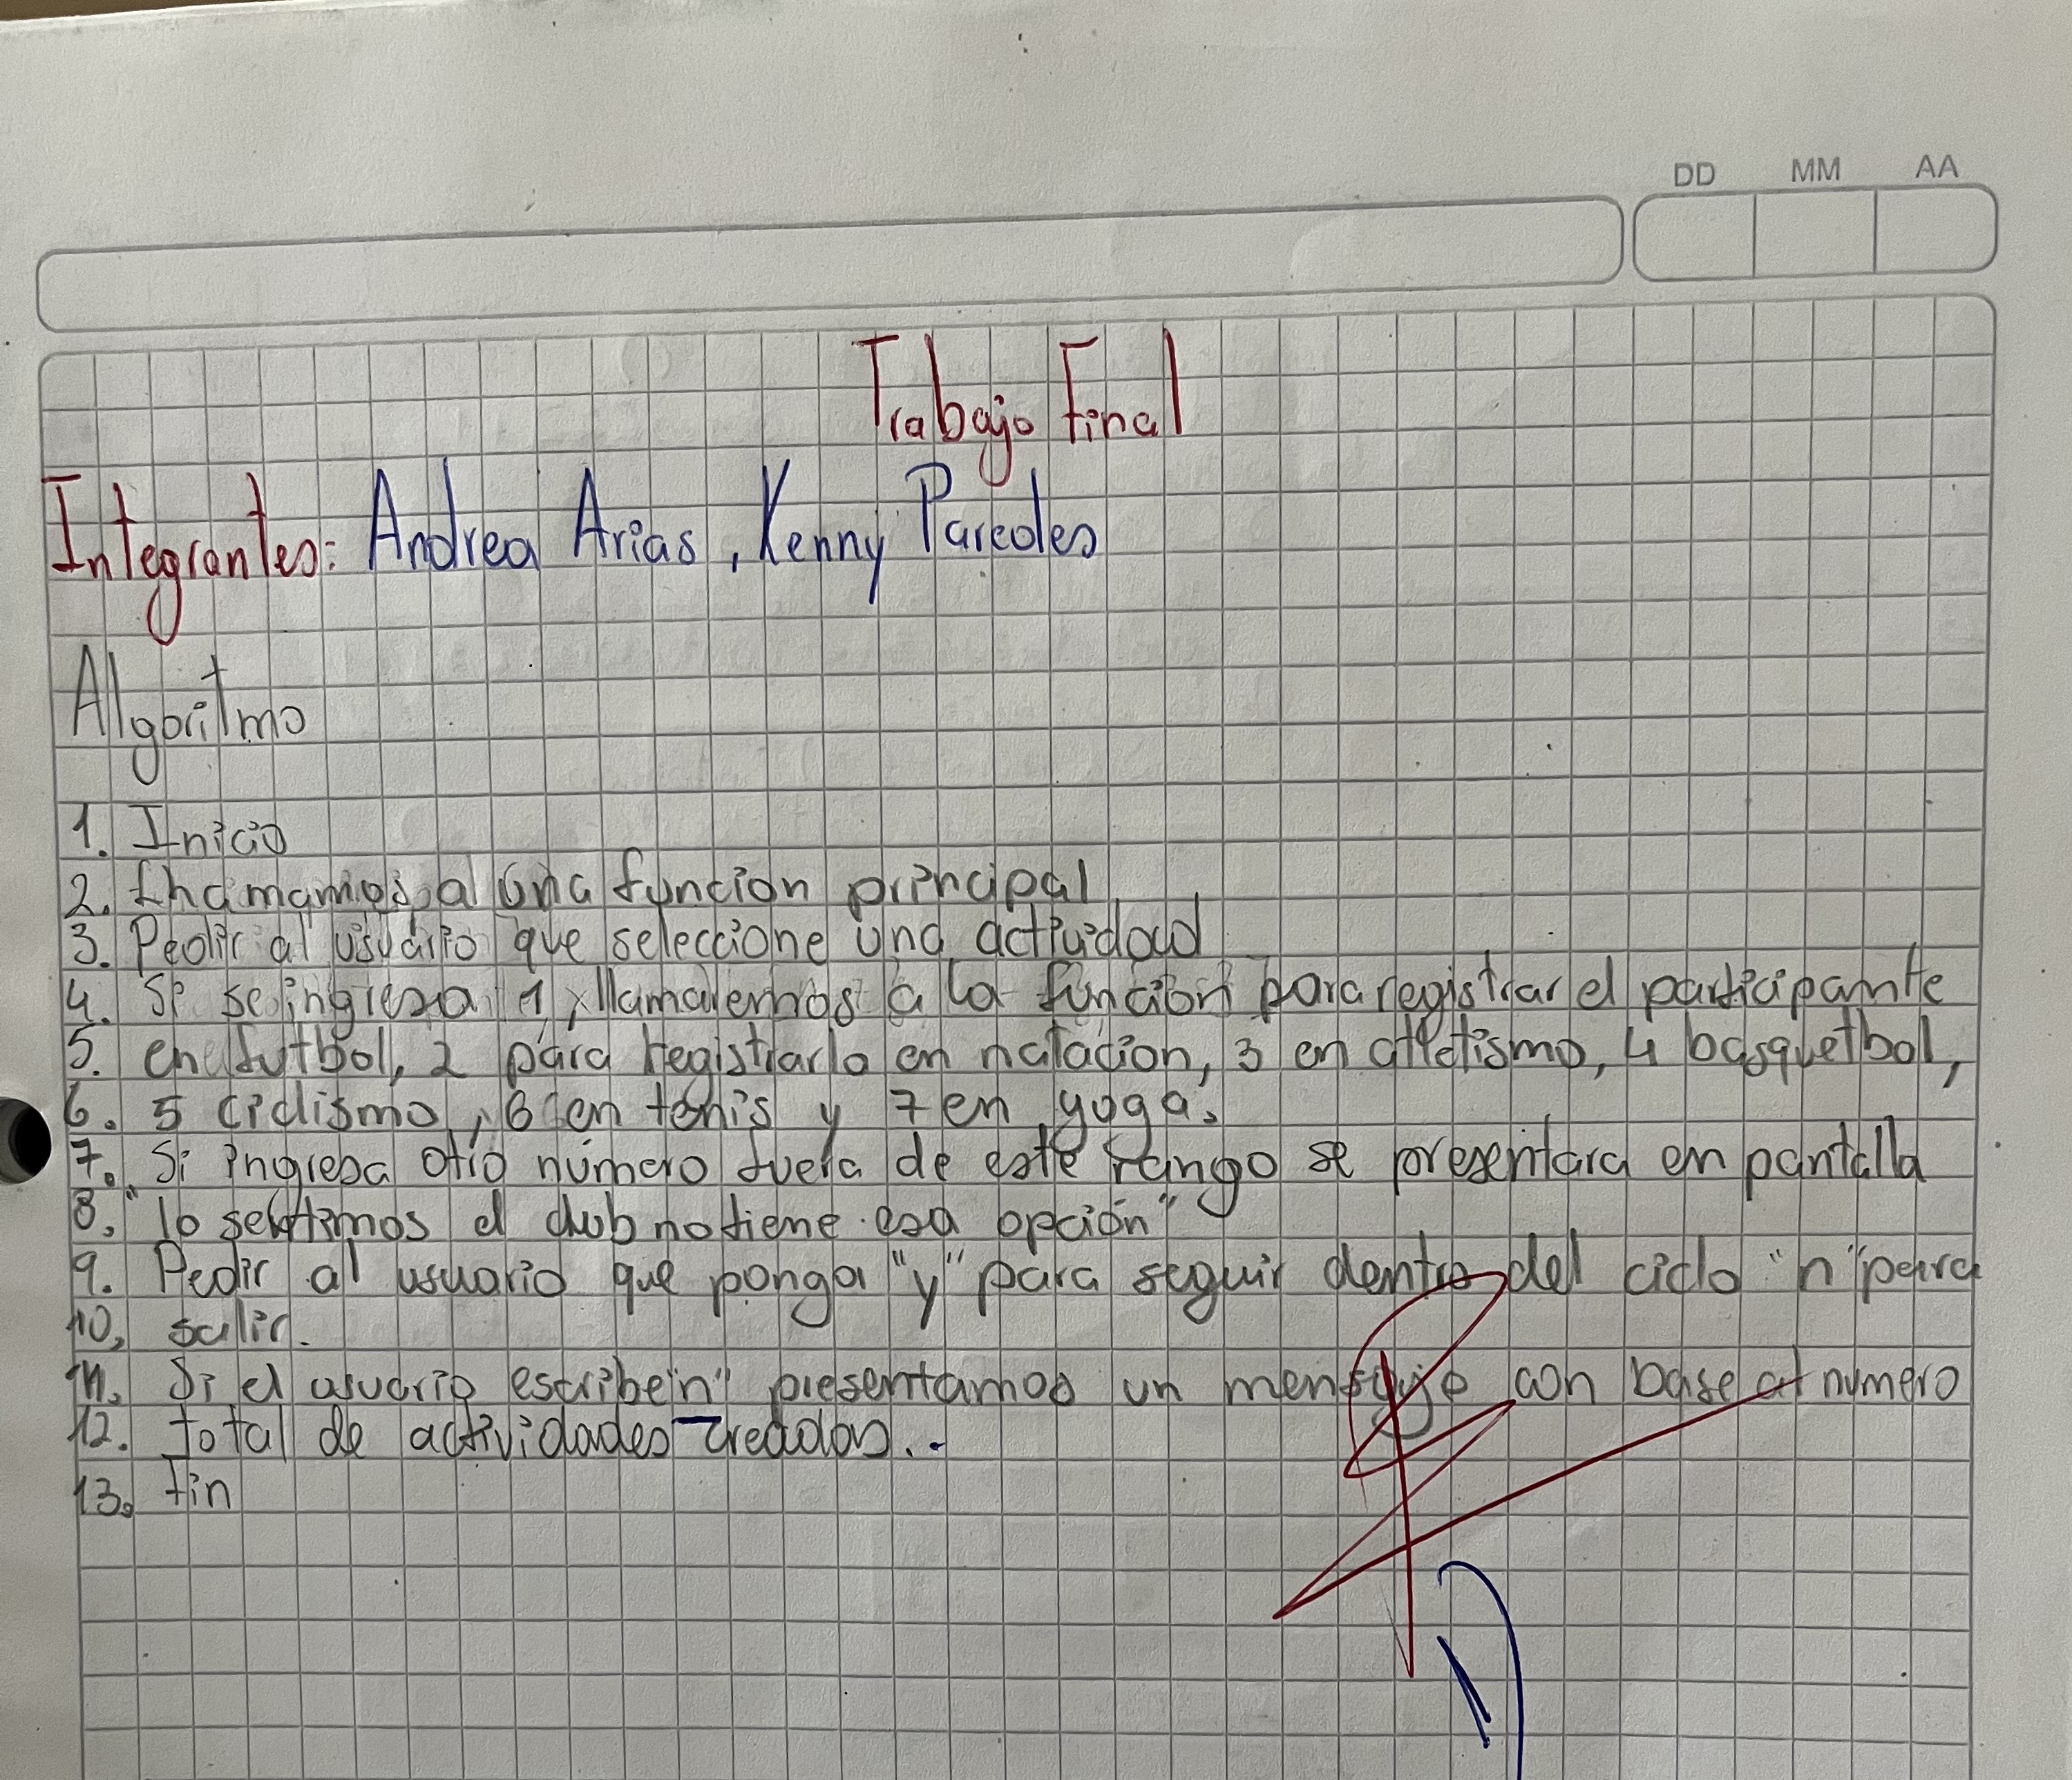 DD MM AA
Trabajo Final
Integrantes: Andrea Arias, Kenny Paredes
Algoritmo
1. Inicio
2. a una funcion principal
3. Pedir al usuario que seleccione una actividad
4. Si se ingresa 1, llamaremos a la función para registrar el participante
5. en futbol, 2 para registrarlo en natacion, 3 en atletismo, 4 basquetbol,
6. 5 ciclismo, 6 en tenis y 7 en yoga.
7. Si ingresa otro número fuera de este rango se presentara en pantalla
8. "lo sentimos el club no tiene esa opción"
9. Pedir al usuario que ponga "y" para seguir dentro del ciclo "n" para
10. salir.
11. Si el usuario escribe "n" presentamos un mensaje con base al numero
12. total de actividades creadas.
13. fin